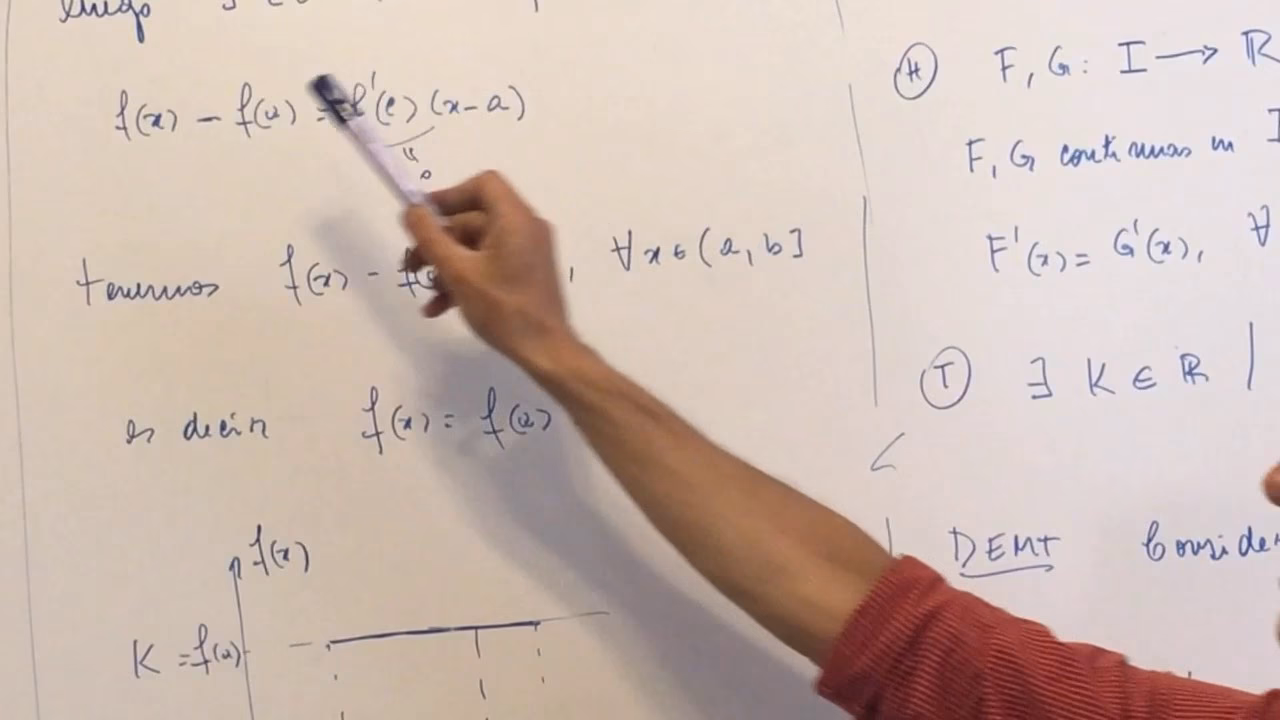 luego
f(x) - f(a) = f'(c) (x-a)
"
0
tenemos f(x) - f(a) , ∀ x ∈ (a, b]
es decir f(x) = f(a)
f(x)
K = f(a)
(H) F, G: I → ℝ
F, G continuas en I
F'(x) = G'(x), ∀
(T) ∃ K ∈ ℝ |
DEMT